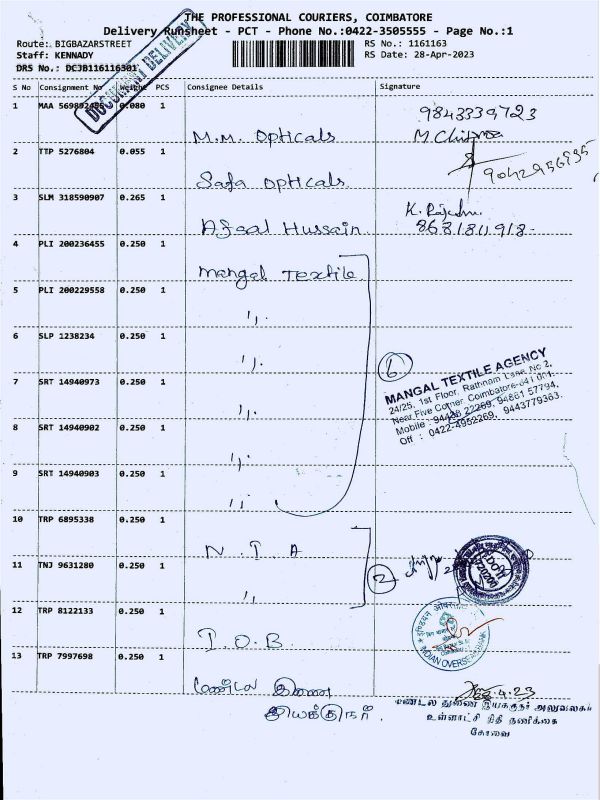 THE PROFESSIONAL COURIERS, COIMBATORE
Delivery Runsheet - PCT - Phone No.:0422-3505555 - Page No.:1
Route: BIGBAZARSTREET RS No.: 1161163
Staff: KENNADY RS Date: 28-Apr-2023
DRS No.: DCJB116116301
DOCUMENT DELIVERY
S No Consignment No Weight PCS Consignee Details Signature
1 MAA 0.080 1 9843339723
M.M. Opticals
2 TTP 5276804 0.055 1
Safa Opticals
3 SLM 318590907 0.265 1 K. 
Afsal Hussain 8681811918
4 PLI 200236455 0.250 1
Mangal Textile
5 PLI 200229558 0.250 1
",
6 SLP 1238234 0.250 1
",
6
7 SRT 14940973 0.250 1
",
MANGAL TEXTILE AGENCY
24/25, 1st Floor, Rathnam Lane No 2,
Near Five Corner, Coimbatore-641 001.
Mobile : 94438 22269, 94861 57794,
Off : 0422-4952269, 9443779363.
8 SRT 14940902 0.250 1
",
9 SRT 14940903 0.250 1
",
10 TRP 6895338 0.250 1
N. I. A
11 TNJ 9631280 0.250 1
2
",
12 TRP 8122133 0.250 1
I.O.B.
INDIAN OVERSEAS BANK
13 TRP 7997698 0.250 1
மண்டல இணை
இயக்குநர்.
.4.23
மண்டல துணை இயக்குநர் அலுவலகம்
உள்ளாட்சி நிதி தணிக்கை
கோவை